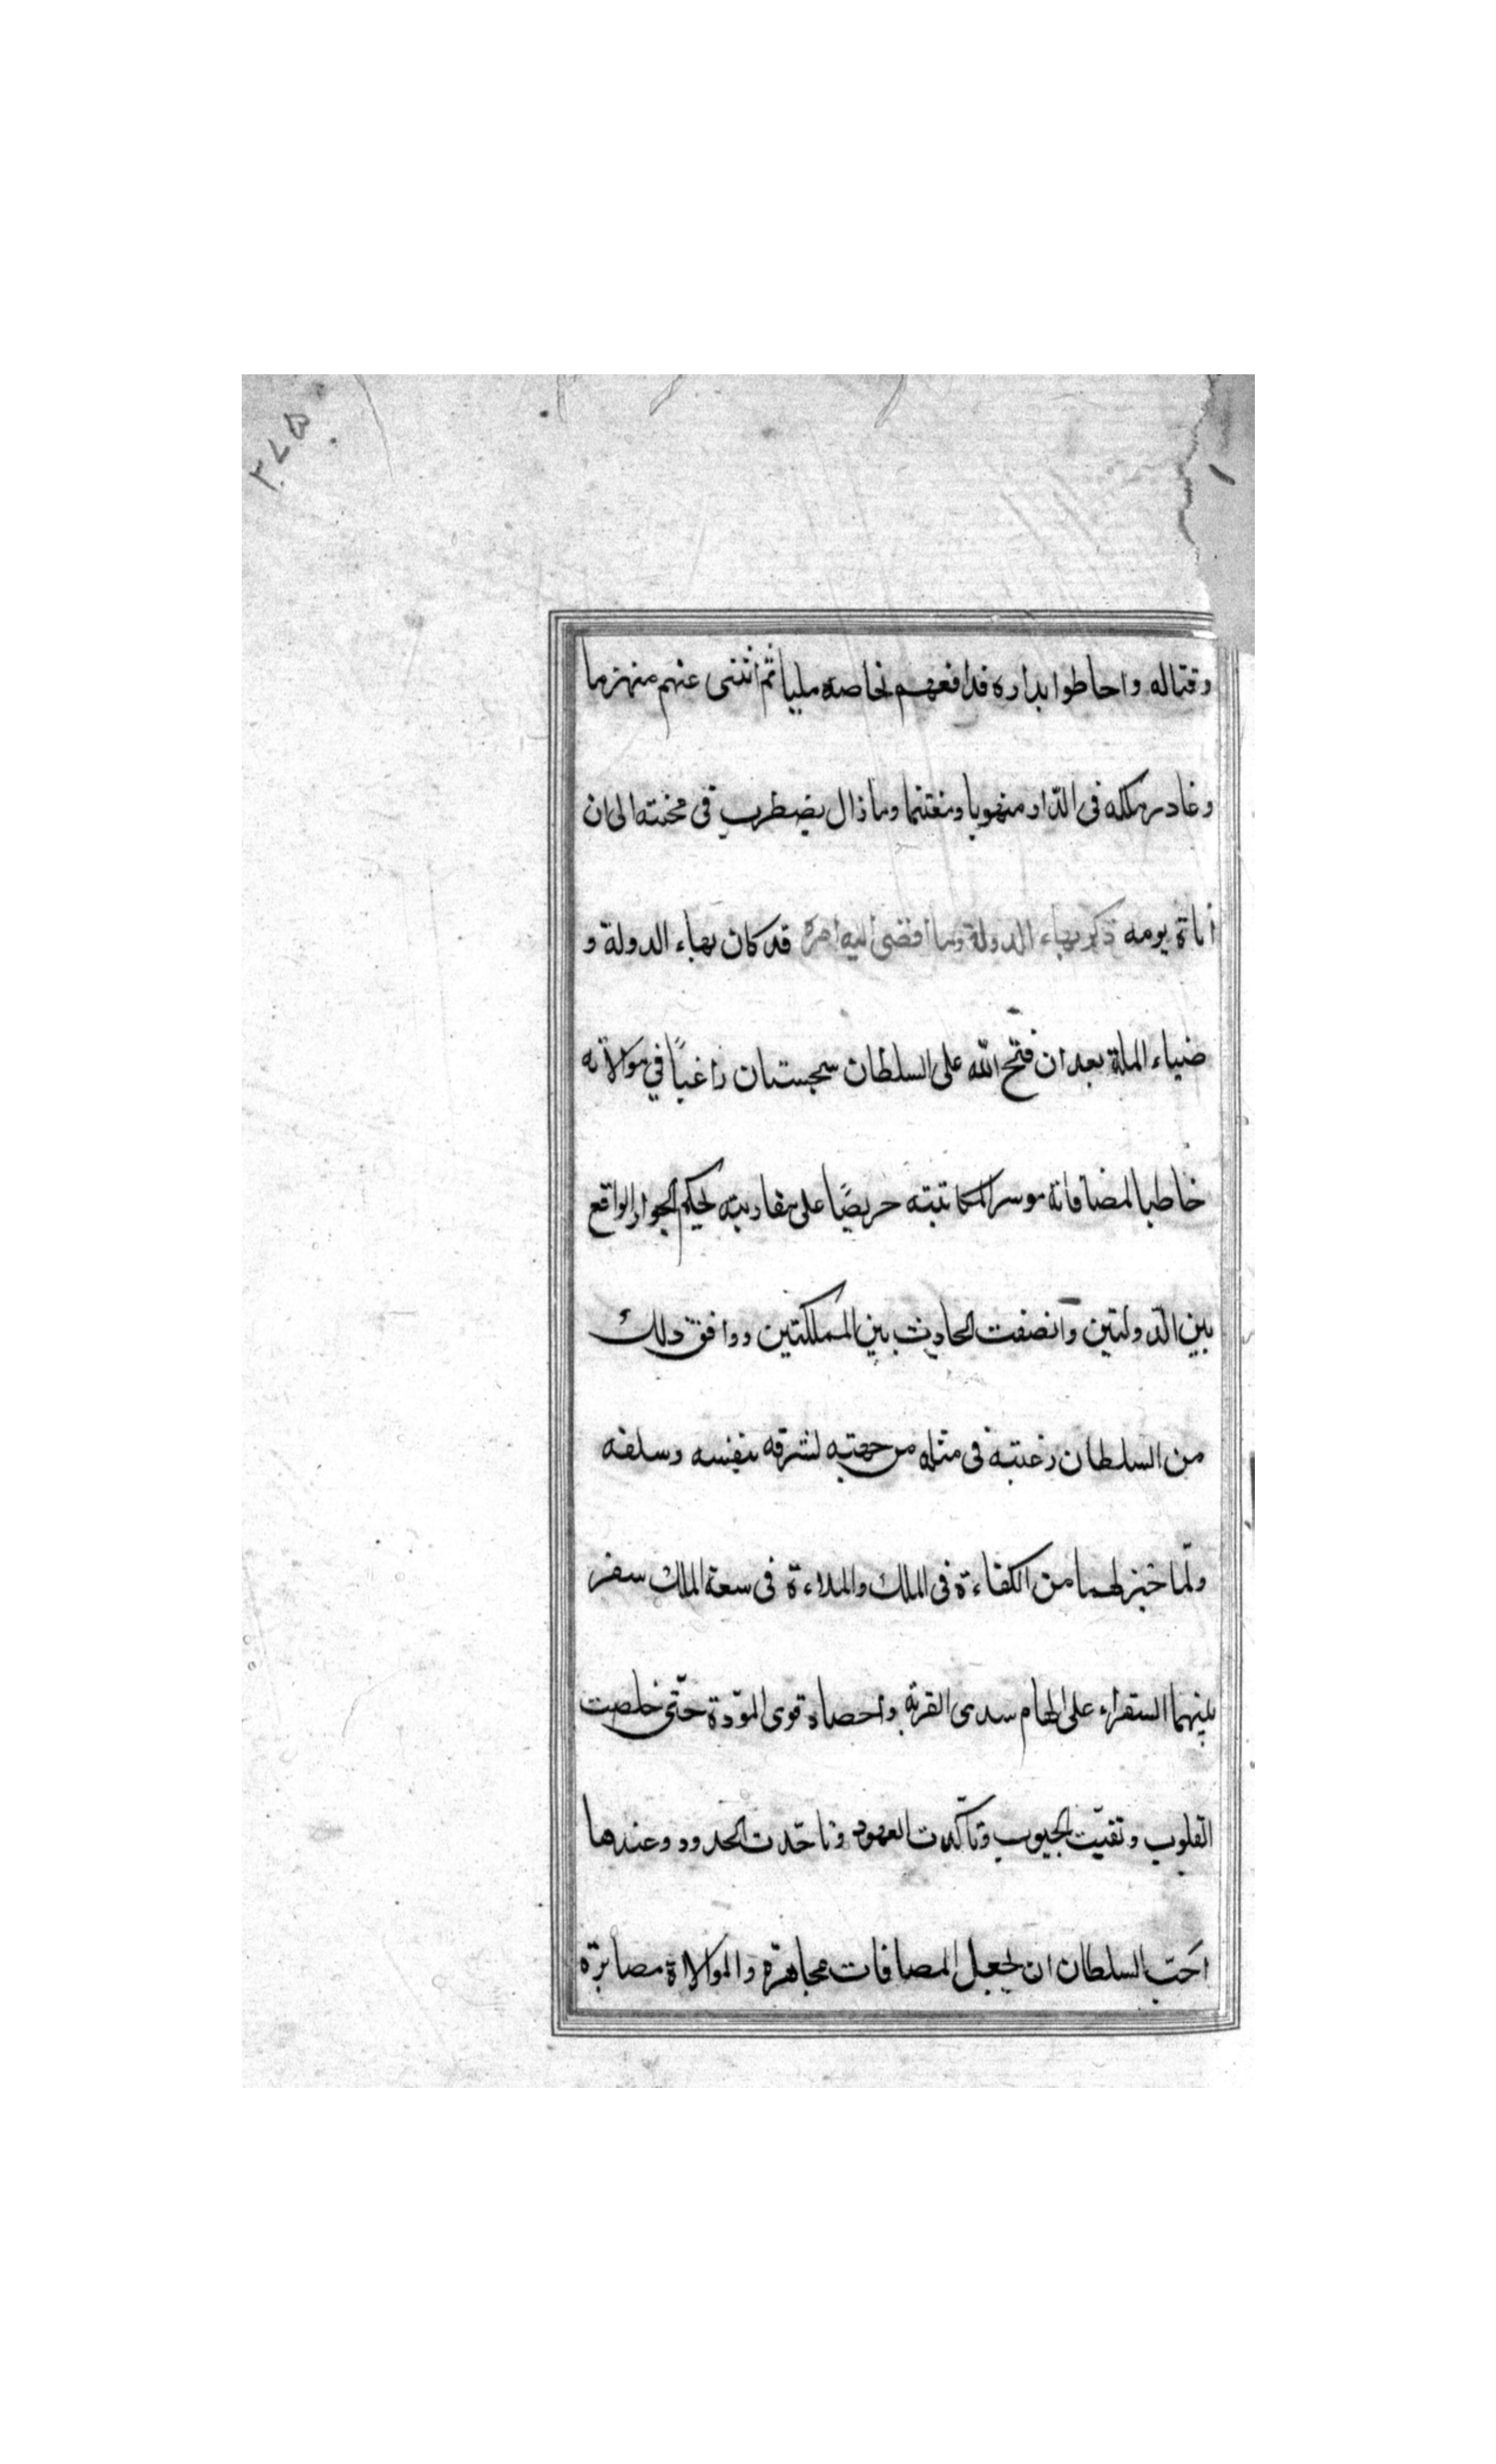 ٢٧٥
وقتاله واحاطوا بداره فدافعهم بخاصه مليا ثم انثنى عنهم منهزما
وغادر ملكه فى الدّار منهوبا ومغتنما وما زال يضطرب فى محنته الى ان
أتاة يومه ذكر بهاء الدولة وما أفضى اليه امره قد كان بهاء الدولة و
ضياء الملة بعد ان فتح الله على السلطان سجستان راغبًا في موالاته
خاطبا لمضافاته موسرا لمكاتبته حريصًا على مقاربته لحكم الجوار الواقع
بين الدّولتين وانصفت الحاديث بين المملكتين ووافق ذلك
من السلطان رغبته فى مثله من جهته لشرفه بنفسه وسلفه
ولمّا خبز لهما من الكفاءة فى الملك والملاءة فى سعة الملك سفر
بينهما السفراء على الحام سدى القربة واحصاد قوى المودّة حتّى خلصت
القلوب ونقيّت الجيوب وتأكّدت العهود وتاحّدت الحدود وعندها
احَبّ السلطان ان يجعل المصافات مجاهرة والموالاة مصابرة